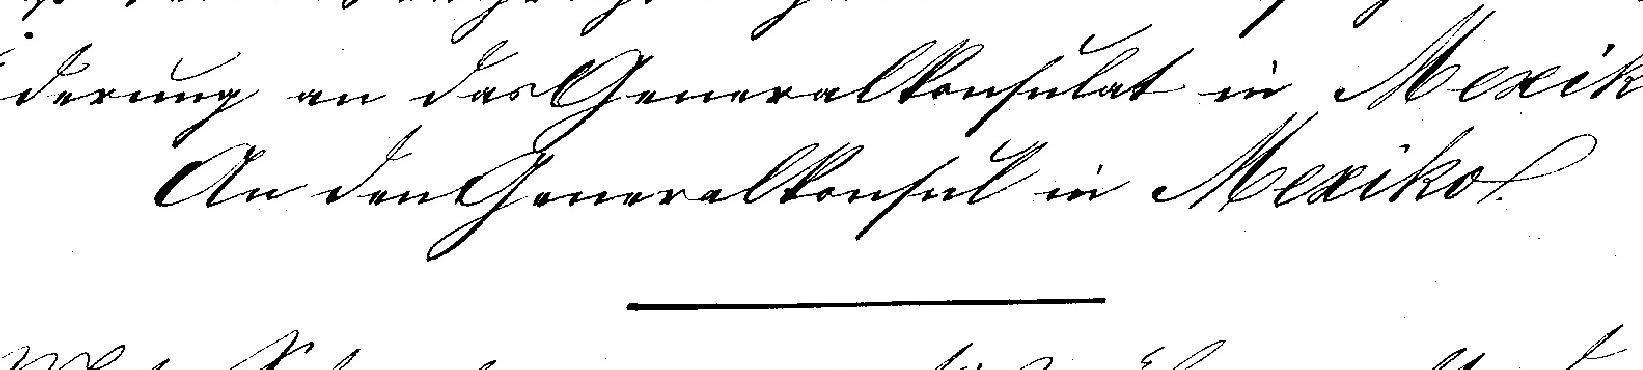 derung an das Generalkonsulat in Mexik
An den Generalkonsul in Mexiko.